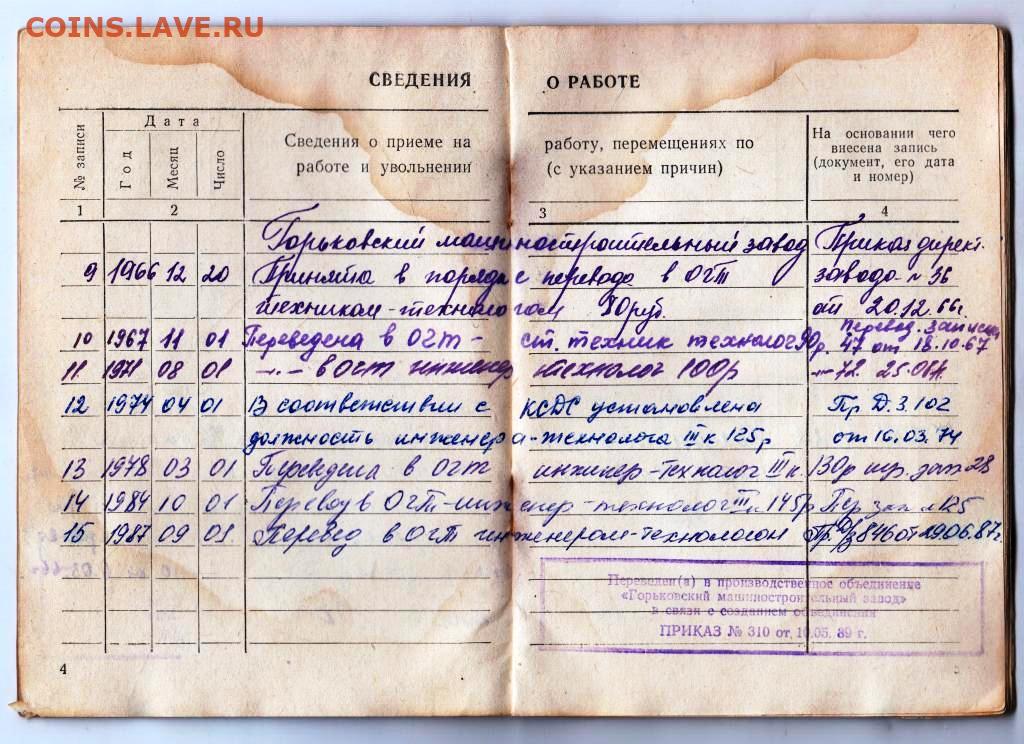 COINS.LAVE.RU
СВЕДЕНИЯ О РАБОТЕ
№ записи
Дата
Год
Месяц
Число
Сведения о приеме на работу, перемещениях по
работе и увольнении (с указанием причин)
На основании чего
внесена запись
(документ, его дата
и номер)
1 2 3 4
Горьковский машиностроительный завод Приказ директ.
9 1966 12 20 Принята в порядке перевода в ОГТ завода № 36
техником-технологом 80 руб. от 20.12.66г.
10 1967 11 01 Переведена в ОГТ - ст. техник технолог 90р. Перевод. записка 47 от 18.10.67
11 1971 08 01 -"- в ОГТ инженер технолог 100р -72.
12 1974 04 01 В соответствии с КСДС установлена Пр Д.З.102
должность инженера-технолога III к 125р от 16.03.74
13 1978 03 01 Переведена в ОГТ инжинер-технолог III к. 130р зап 28
14 1984 10 01 Перевод в ОГТ-инженер-технолог III к. 145р Пер зап №125
15 1987 09 01 Перевод в ОГТ инженером-технологом Пр. 846 от 19.06.87г.
Переведен(а) в производственное объединение
«Горьковский машиностроительный завод»
в связи с созданием объединения
ПРИКАЗ № 310 от 10.05. 89 г.
4